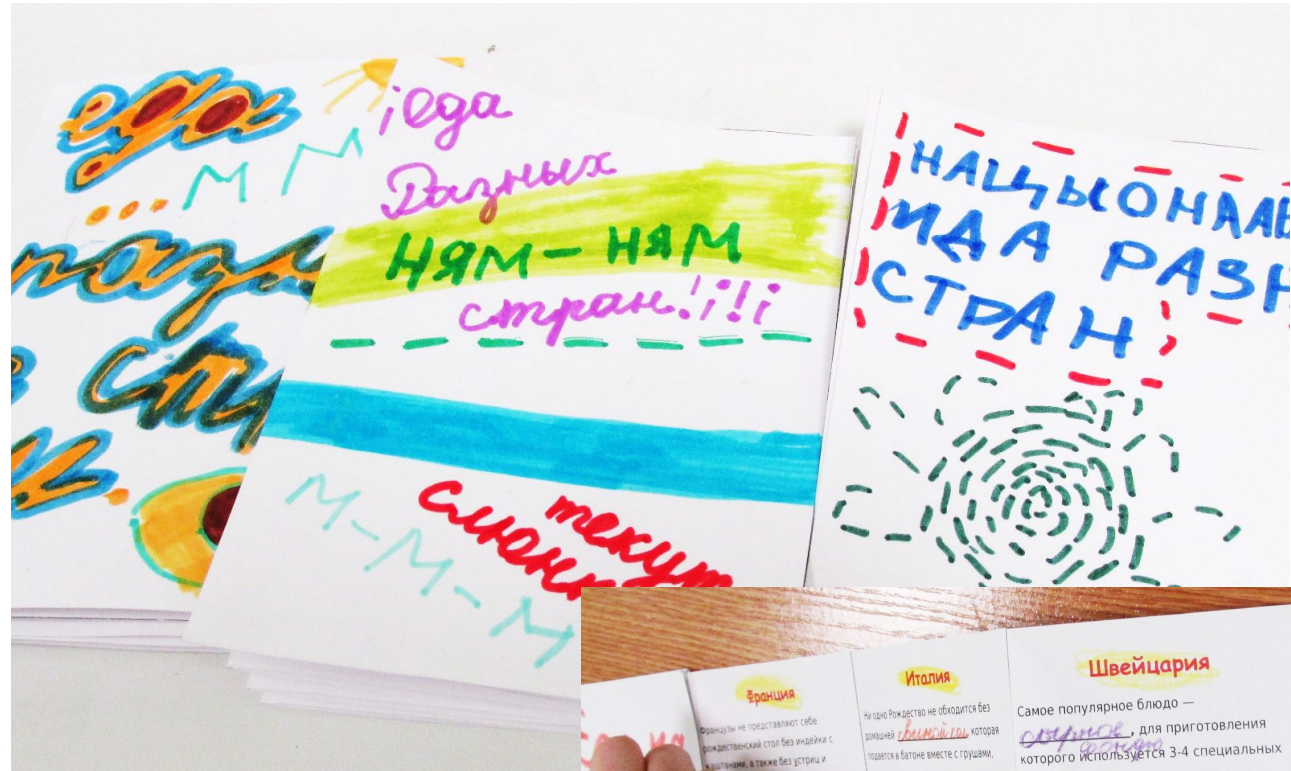 еда
... м м
разн
стр
¡еда
Разных
ням-ням
стран!¡!¡
текут
слюнк
м-м-м
НАЦЫОНАЛ
ИДА РАЗН
СТРАН
Франция
Французы не представляют себе
рождественский стол без индейки с
каштанами, а также без устриц и
Италия
Ни одно Рождество не обходится без
домашней свиной которая
подается в батоне вместе с грушами,
Швейцария
Самое популярное блюдо —
сырное фондю, для приготовления
которого используется 3-4 специальных